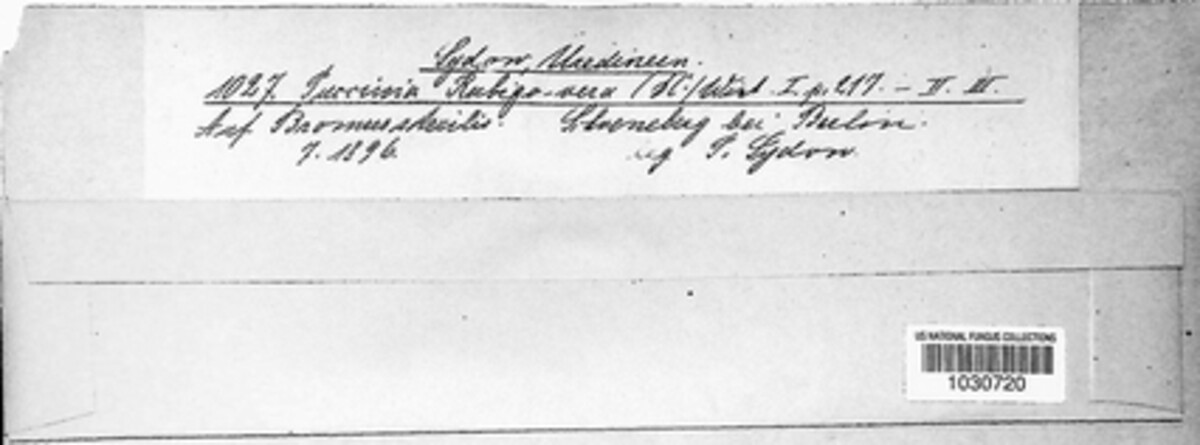 Sydow, Uredineen.
1027. Puccinia Rubigo-vera (DC.) Wint. I. p. 217. – II. III.
Auf Bromus sterilis. bei Berlin.
7. 1896. leg P. Sydow.
US NATIONAL FUNGUS COLLECTIONS
1030720